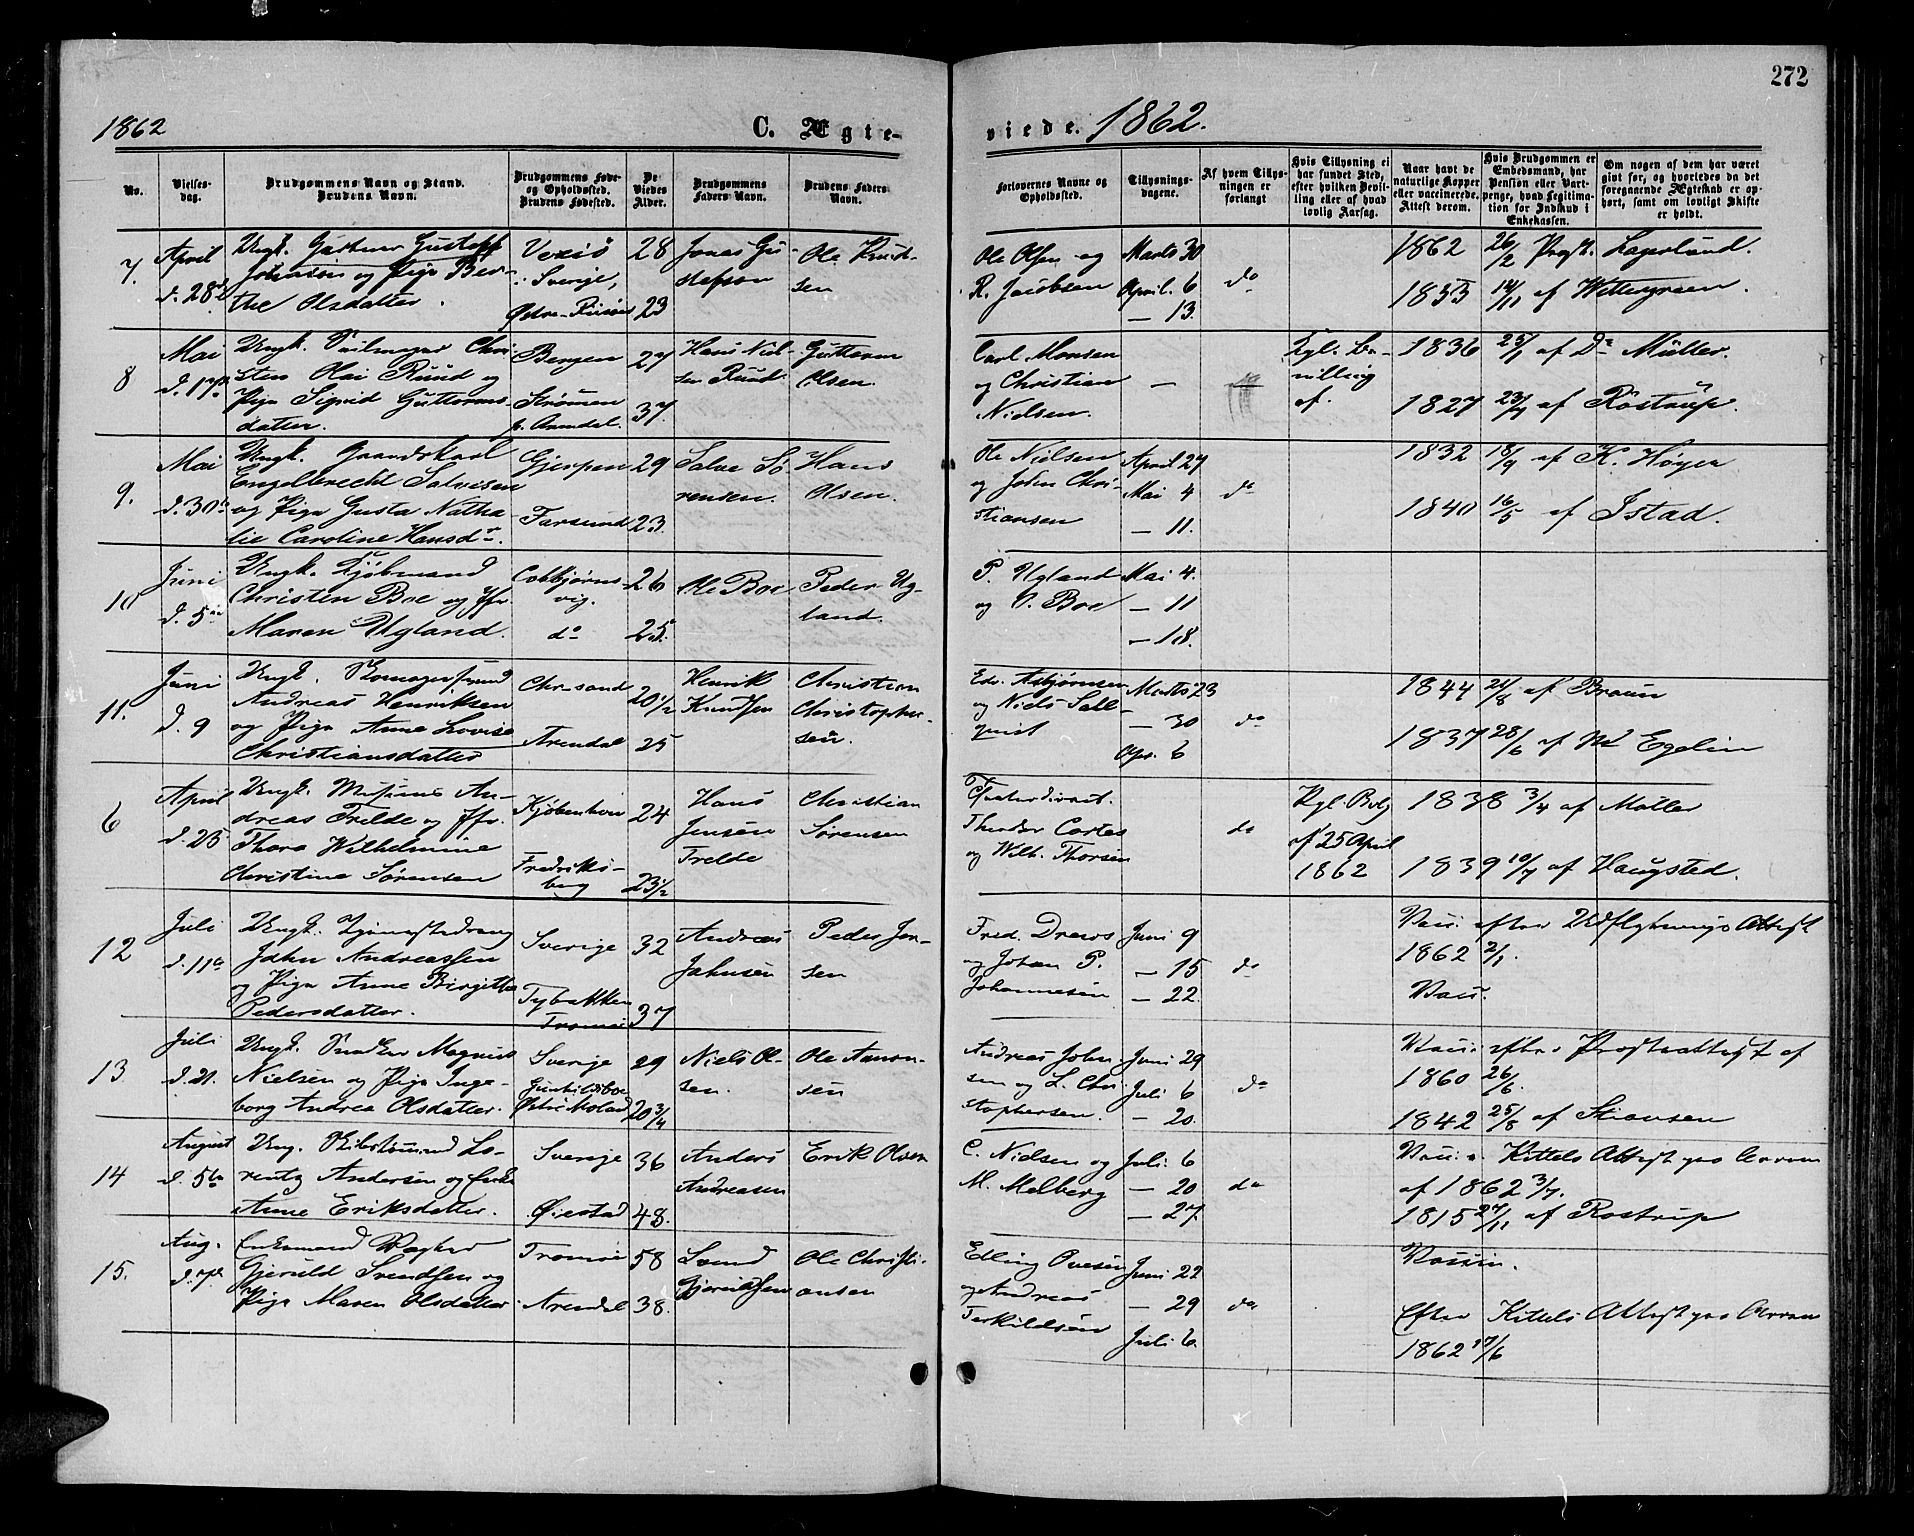 272
1862
C. Ægte-
viede. 1862.
No.
Vielses-
dag.
Brudgommens Navn og Stand.
Brudens Navn.
Brudgommens Føde-
og Opholdssted.
Brudens Fødested.
De
Viedes
Alder.
Brudgommens
Faders Navn.
Brudens Faders
Navn.
Forlovernes Navne og
Opholdssted.
Tillysnings-
dagene.
Af hvem Tillys-
ningen er
forlangt
Hvis Tillysning ei
har fundet Sted,
efter hvilken Bevil-
ling eller af hvad
lovlig Aarsag.
Naar havt de
naturlige Kopper
eller vaccinerede.
Attest derom.
Hvis Brudgommen er
Embedsmand, har
Pension eller Vart-
penge, hvad Legitima-
tion for Indskud i
Enkekassen.
Om nogen af dem har været
givt før, og hvorledes da det
foregaaende Ægteskab er op-
hørt, samt om lovligt Skifte
er holdt.
7.
April
d. 28de
Ungk. Gustaf
Johnson og Pige Ber-
the Olsdatter.
Vexiö
i Sverige,
Østre-Riisør
28
23
Jonas Gu-
stafson
Ole Knud-
sen
Ole Olsen og
R. Jacobsen
Marts 30
April. 6
— 13.
do
1862 26/2 Prost. Lagerlund.
1853 14/11 af Wettergreen.
8
Mai
d. 17de
Ungk. Seilmager Chri-
sten Olai Ruud og
Pige Sigrid Guttorms-
datter.
Bergen
Strømmen
p. Arendal.
27
37.
Hans Niel-
sen Ruud.
Guttorm
Olsen.
Carl Monsen
og Christian
Nielsen.
—
Kgl. Be-
villing
af.
1836 25/1 af Dr Müller.
1827 23/7 af Rostrup.
9.
Mai
d. 30te
Ungk. Gaardskarl
Engelbrecht Salvesen
og Pige Gusta Natha-
lie Caroline Hansdr.
Gjerpen
Farsund
29
23.
Salve Sø-
rensen.
Hans
Olsen.
Ole Nielsen
og John Chri-
stiansen
April 27
Mai 4
— 11.
do
1832 18/9 af K. Høyer
1840 16/5 af Istad.
10
Juni
d. 5te
Ungk. Kjøbmand
Christen Boe og Jfr.
Maren Ugland.
Colbjørns-
vig.
do
26
25.
Ole Boe
Peder Ug-
land.
P. Ugland
og O. Boe
Mai 4.
— 11
— 18.
11.
Juni
d. 9
Ungk.
Andreas Henriksen
og Pige Anne Lovise
Christiansdatter
Chr-sand
Arendal
20 1/2
25
Henrik
Knudsen
Christian
Christopher-
sen.
Edv. Asbjørnsen
og Niels Sall-
quist
Marts 23
— 30
Apr. 6
do
1844 21/8 af Braun
1837 28/6 af Egelin
6
April
d. 25
Ungk. Musicus An-
dreas Trelde og Jfr.
Thora Wilhelmine
Christine Sørensen
Kjøbenhavn
Fredriks-
berg
24
23 1/2
Hans
Jensen
Trelde
Christian
Sørensen
Theaterdirect.
Theodor Cortes
og Wilh. Thorsen
do
Kgl. Bvlg
af 25 April
1862
1838 3/4 af Møller
1839 10/7 af Haugsted.
12
Juli
d. 11te
Ungk.
John Andreassen
og Pige Anne Birgitthe
Pedersdatter.
Sverige
Tybakken
Tromøe
32
37
Andreas
Johnsen
Peder Jen-
sen
Fred. Drews
og Johan P.
Johannesen
Juni 9
— 15
— 22.
do
Vacc. efter Udflytnings Attest
1862 2/1.
Vacc.
13
Juli
d. 21.
Ungk. Snedker Magnus
Nielsen og Pige Inge-
borg Andrea Olsdatter.
Sverige
Østre Moland
29
20 3/4
Niels Ol-
sen.
Ole Aanon-
sen
Andreas John-
sen og L. Chri-
stophersen.
Juni 29
Juli 6
— 20.
do
Vacc. efter Prosteattest af
1860 26/6.
1842 25/8 af Stiansen
14
August
d. 5te
Ung. Lo-
rentz Andersen og Enke
Anne Eriksdatter.
Sverige
Øiestad
36
48.
Anders
Andreasen
Erik Olsen
C. Nielsen og
M. Melberg
Juli. 6
— 20
— 27.
do
Vacc. e. Kittels Attest
af 1862 3/7.
1815 27/11 af Rostrup
15.
Aug.
d. 7de
Enkemand
Gjeruld Svendsen og
Pige Maren Olsdatter.
Tromøe
Arendal
58
38.
Svend
Gjeruldsen
Ole Christi-
ansen
Edling Ovesen
og Andreas
Terkildsen
Juni 22
— 29
Juli 6.
do
Vaccin.
Efter Kittels Attest
1862 17/6